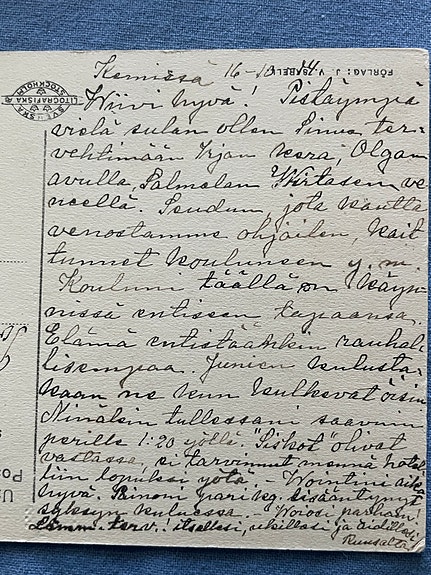 Kemissä 16-10-14
FÖRLAG: J. V. ISABELL
SVENSKA LITOGRAFISKA STOCKHOLM
Wiivi hyvä! Pistäympä
vielä sulan ollen Sinua ter-
vehtimään Irjan kera, Olgan
avulla, Palmelan Wirtasen ve-
neellä. Seudun, jota kautta
venostamme ohjailen, kait
tunnet koulunsen y. m.
Kouluni täällä on käyn-
nissä entiseen tapaansa.
Elämä entistäänkin rauhal-
lisempaa. Junien kulusta-
kaan ne kun kulkevat öisin
Ninäkin tullessani saavuin
perille 1:20 yöllä. "Siskot" olivat
vastassa, ei tarvinnut mennä hotel-
liin lopuksi yötä. - Wointini
hyvä. Painom pari kg. lisääntynyt
syksyn kuluessa. - Woiosi parhain
Lämm. terv.! itsellesi, ukillesi ja äidillesi
Ruusalta!